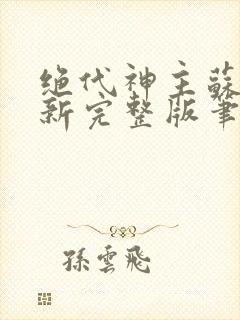 绝代神主蘇
新完整版筆
孫雲飛